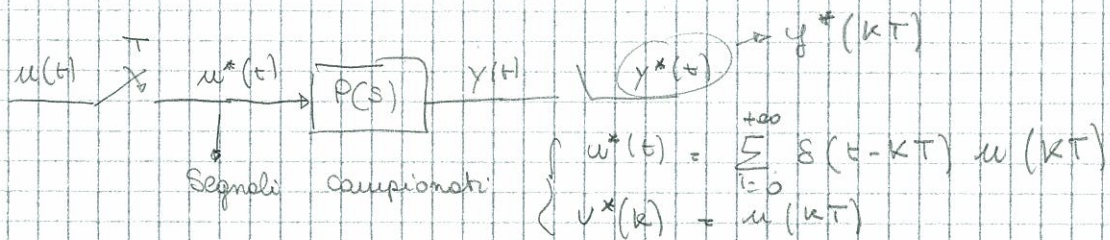 y*(KT)
T
u(t) u*(t) P(s) y(t) y*(t)
Segnali campionati
{ u*(t) = +∞ Σ i=0 δ(t-KT) u(KT)
u*(k) = u(KT)